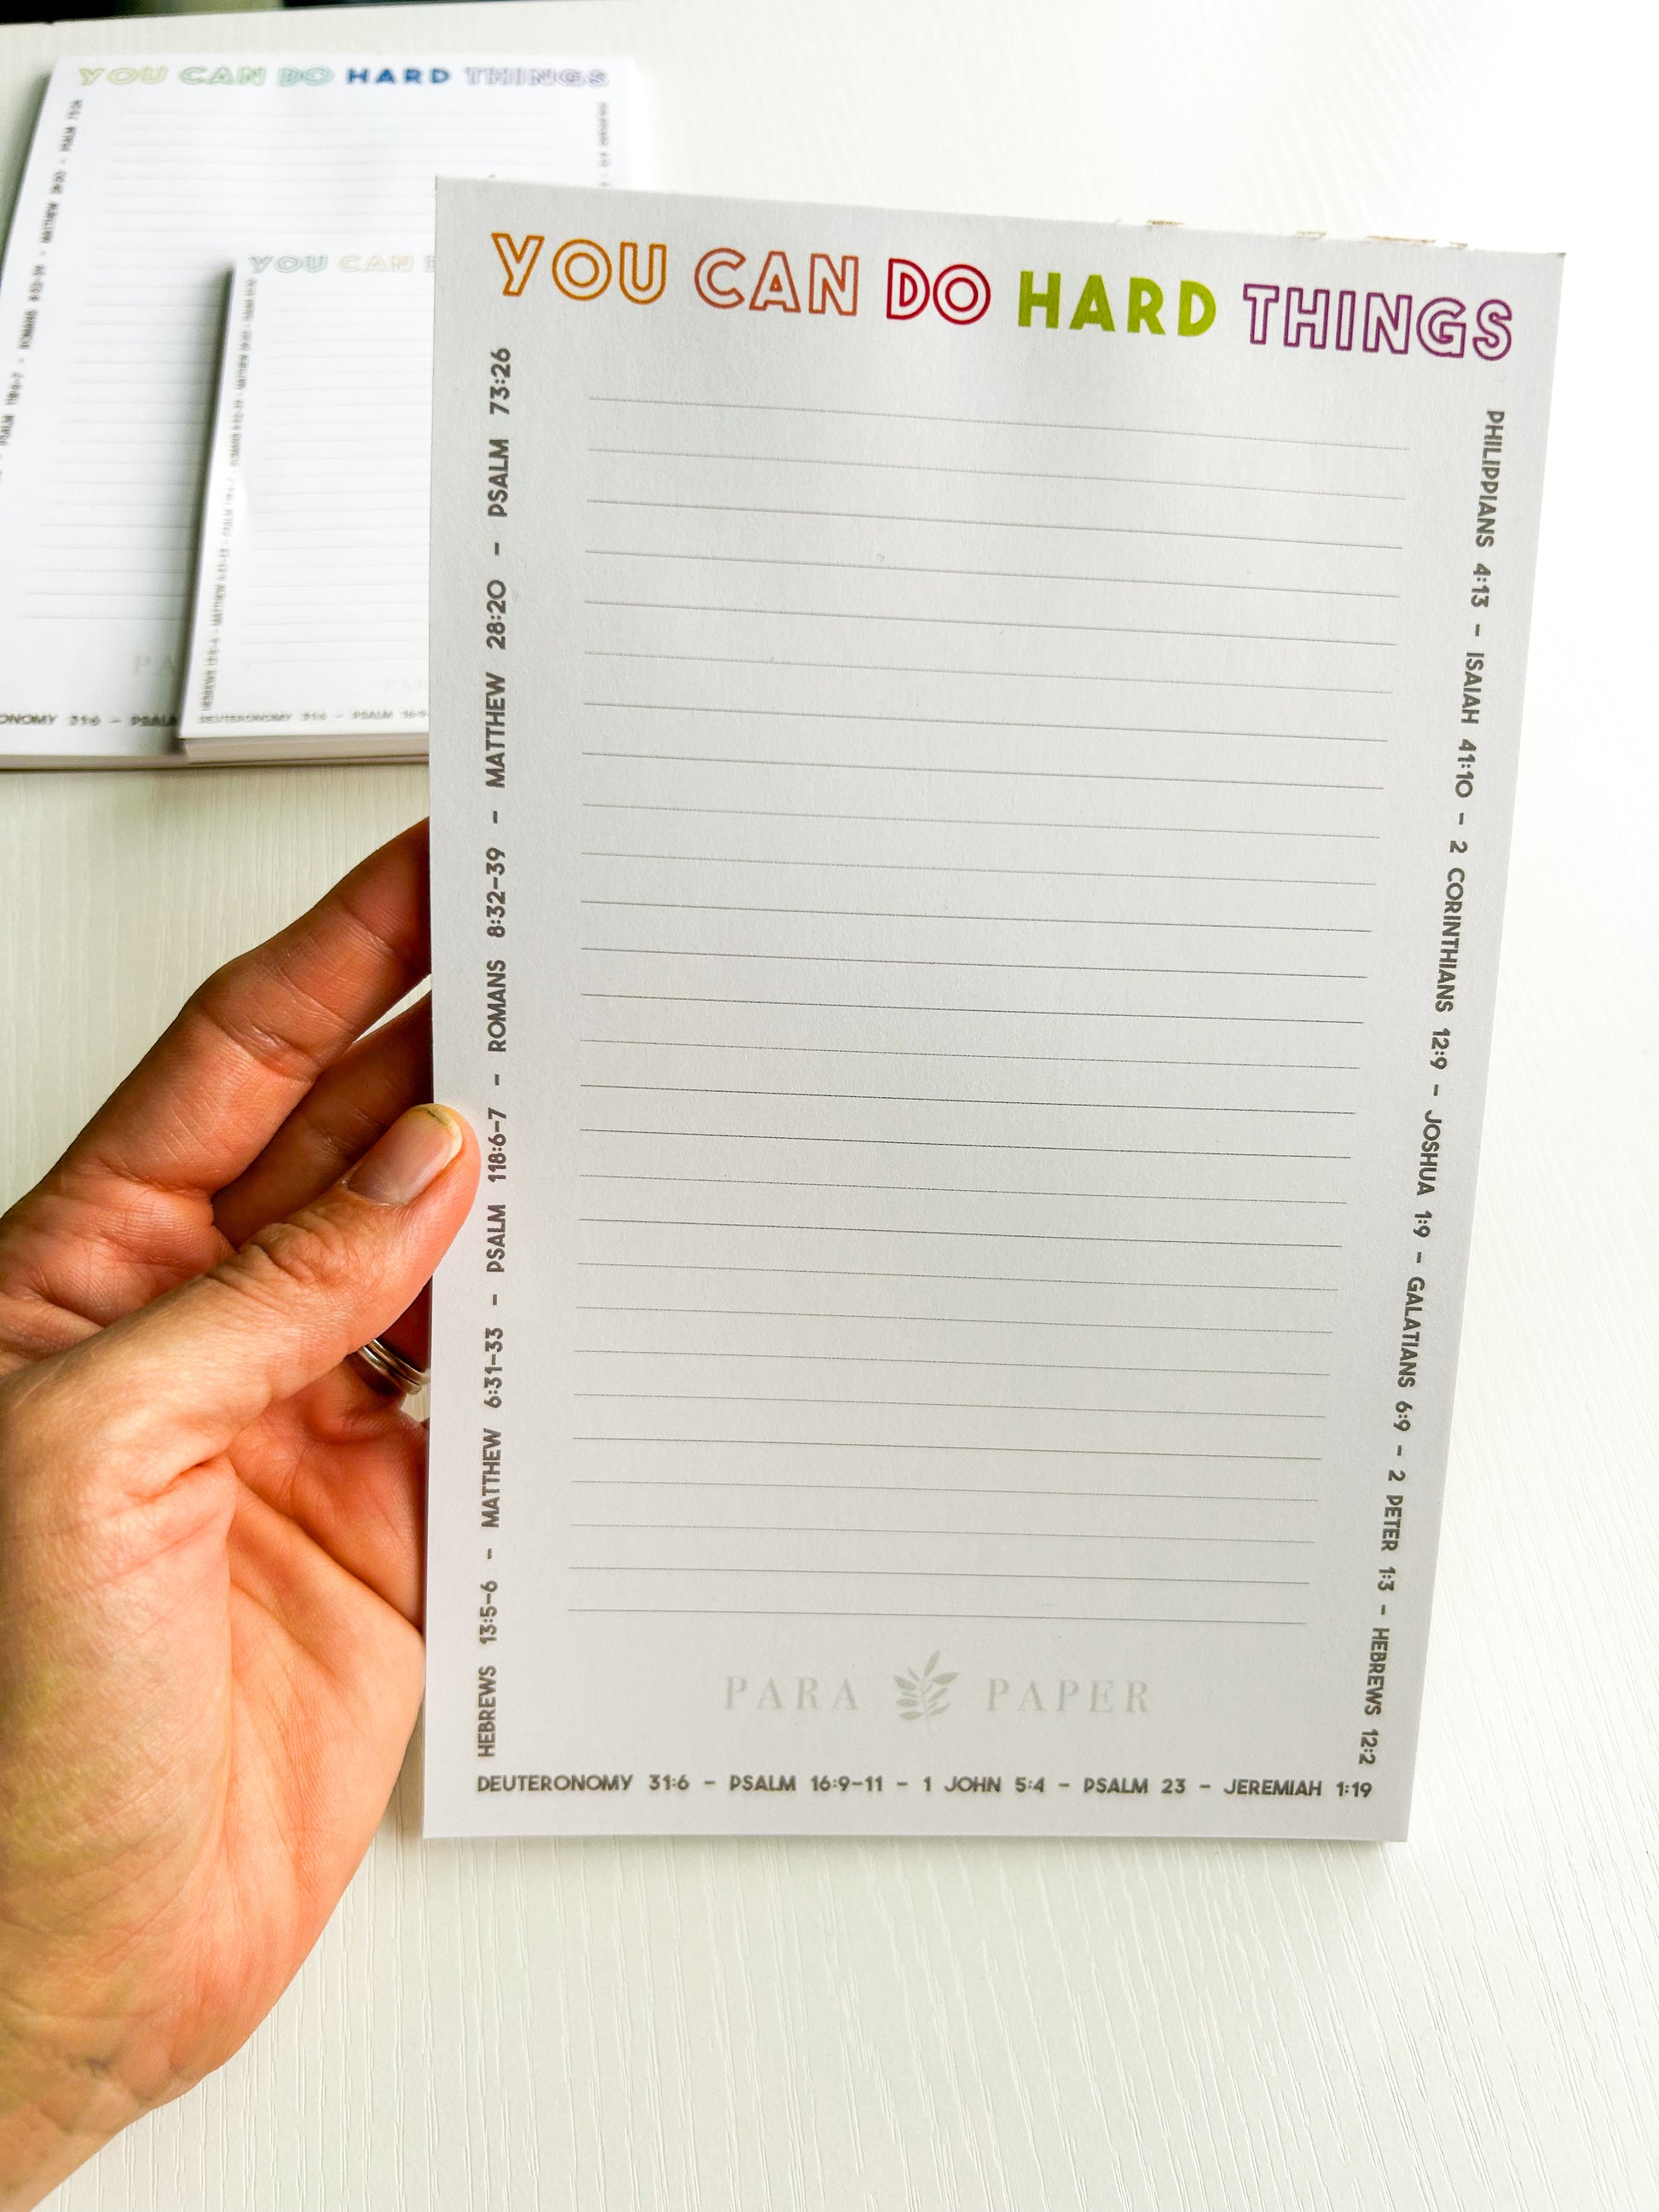 YOU CAN DO HARD THINGS
PSALM 118:6-7 - ROMANS 8:32-39 - MATTHEW 28:20 - PSALM 73:26
ONOMY 31:6 - PSALM
YOU CAN
DEUTERONOMY 31:6 - PSALM 16:9-
YOU CAN DO HARD THINGS
HEBREWS 13:5-6 - MATTHEW 6:31-33 - PSALM 118:6-7 - ROMANS 8:32-39 - MATTHEW 28:20 - PSALM 73:26
PHILIPPIANS 4:13 - ISAIAH 41:10 - 2 CORINTHIANS 12:9 - JOSHUA 1:9 - GALATIANS 6:9 - 2 PETER 1:3 - HEBREWS 12:2
PARA PAPER
DEUTERONOMY 31:6 - PSALM 16:9-11 - 1 JOHN 5:4 - PSALM 23 - JEREMIAH 1:19